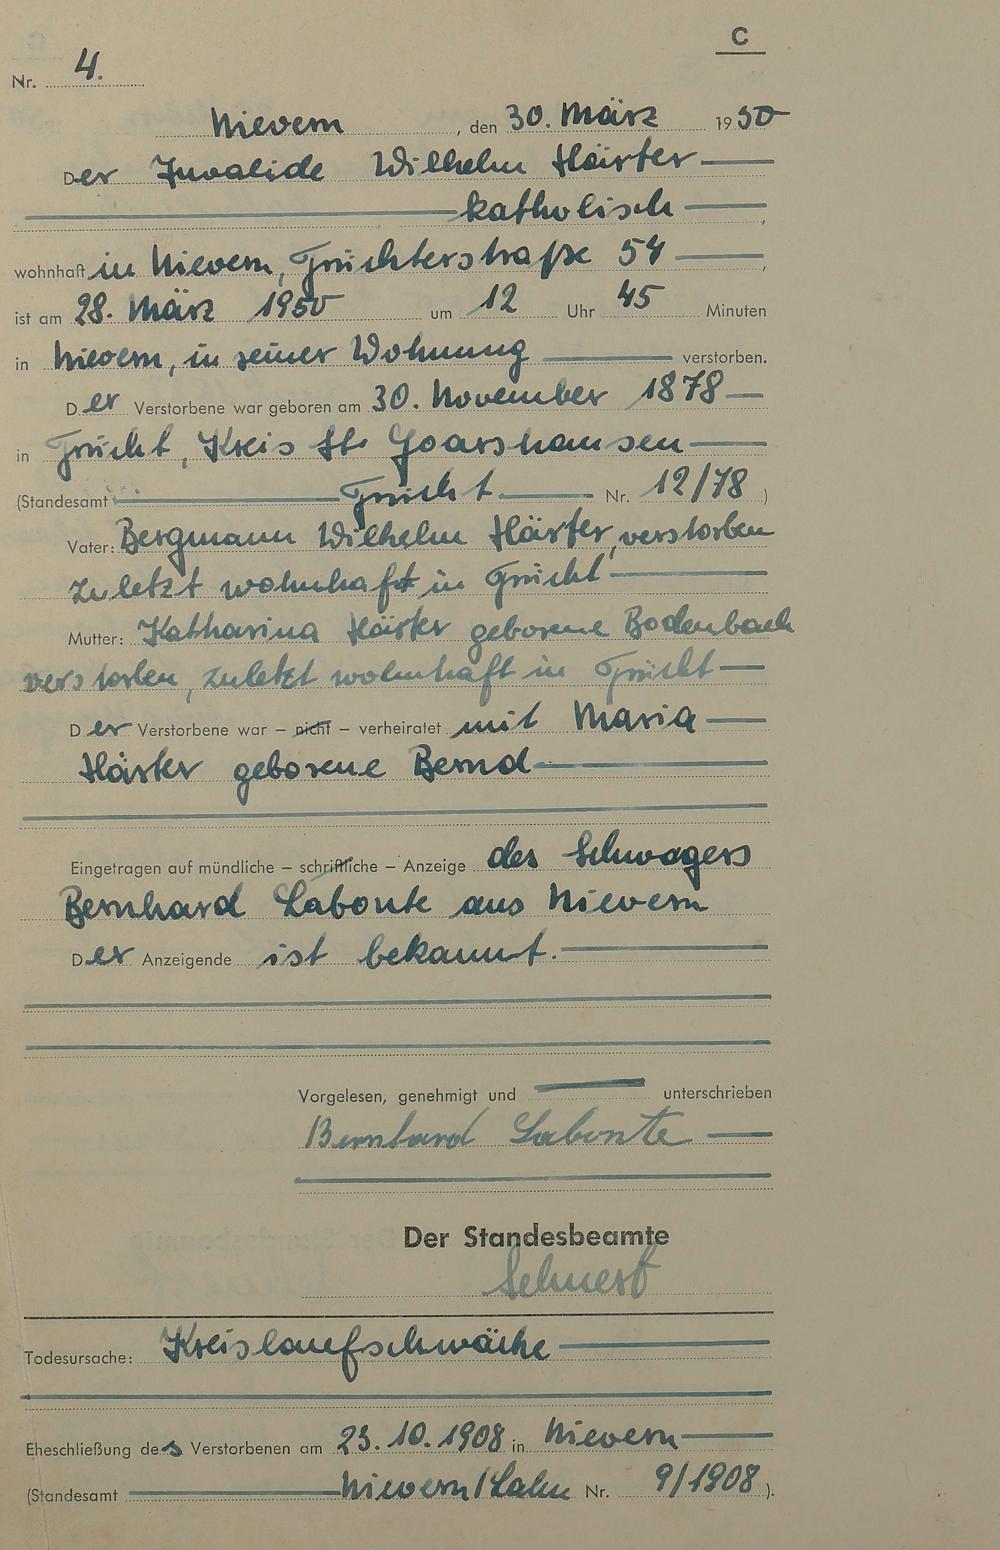 C
Nr. 4.
Nievern, den 30. März 1950
Der Invalide Wilhelm Härter
katholisch,
wohnhaft in Nievern, Früchterstraße 54,
ist am 28. März 1950 um 12 Uhr 45 Minuten
in Nievern, in seiner Wohnung verstorben.
Der Verstorbene war geboren am 30. November 1878
in Frücht, Kreis St. Goarshausen
(Standesamt Frücht Nr. 12/78)
Vater: Bergmann Wilhelm Härter, verstorben
zuletzt wohnhaft in Frücht
Mutter: Katharina Härter geborene Bodenbach
verstorben, zuletzt wohnhaft in Frücht
Der Verstorbene war – nicht – verheiratet mit Maria
Härter geborene Bernd
Eingetragen auf mündliche – schriftliche – Anzeige des Schwagers
Bernhard Labonte aus Nievern
Der Anzeigende ist bekannt.
Vorgelesen, genehmigt und unterschrieben
Bernhard Labonte
Der Standesbeamte
Todesursache: Kreislaufschwäche
Eheschließung des Verstorbenen am 23.10.1908 in Nievern
(Standesamt Nievern/Lahn Nr. 9/1908).